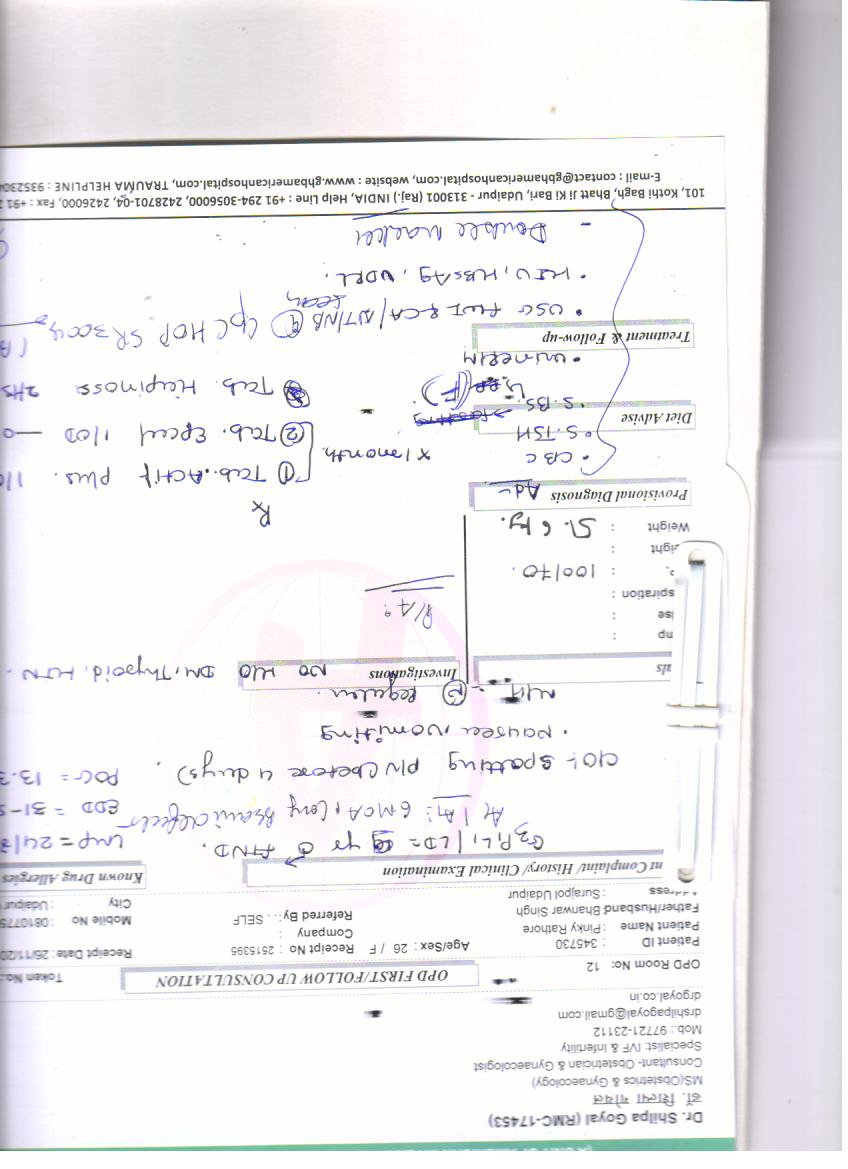 Dr. Shilpa Goyal (RMC-17453)
डॉ. शिल्पा गोयल
MS(Obstetrics & Gynaecology)
Consultant- Obstetrician & Gynaecologist
Specialist: IVF & Infertility
Mob.: 97721-23112
drshilpagoyal@gmail.com
drgoyal.co.in
OPD FIRST/FOLLOW UP CONSULTATION
OPD Room No: 12
Token No.
Patient ID : 345730
Age/Sex: 26 / F
Receipt No : 2515395
Receipt Date: 25/11/20
Patient Name : Pinky Rathore
Company :
Mobile No : 0810775
Father/Husband Bhanwar Singh
Referred By: . . SELF
City : Udaipur
Address : Surajpol Udaipur
nt Complaint/ History/ Clinical Examination
Known Drug Allergies
G3 P1 L1 A1 / LD= yr ♂ FTND.
LMP = 24/
A1: 6 MOA, Cong
EDD = 31-
C/O:- Spotting P/V (before 4 days).
POG = 13.3
• nausea/vomiting
M/H - Regular.
als
Investigations
NO H/O DM, Thyroid, HTN.
np :
lse :
spiration :
P. : 100/70.
ight :
Weight : 51.6 kg.
P/A:
Rx
Provisional Diagnosis
Adv
• CBC
• S.TSH
① Tab. ACHIF Plus. 1/0
x 1 month
② Tab. 1/OD
Diet Advise
• S.BS. (F).
• Urine R/M
Tab. 2/HS
Treatment & Follow-up
• USG /NT/NB Scan
④ SR 300
• HIV, HBsAg, VDRL.
- Double Marker
101, Kothi Bagh, Bhatt Ji Ki Bari, Udaipur - 313001 (Raj.) INDIA, Help Line : +91 294-3056000, 2428701-04, 2426000, Fax : +91
E-mail : contact@gbhamericanhospital.com, website : www.gbhamericanhospital.com, TRAUMA HELPLINE : 9352304